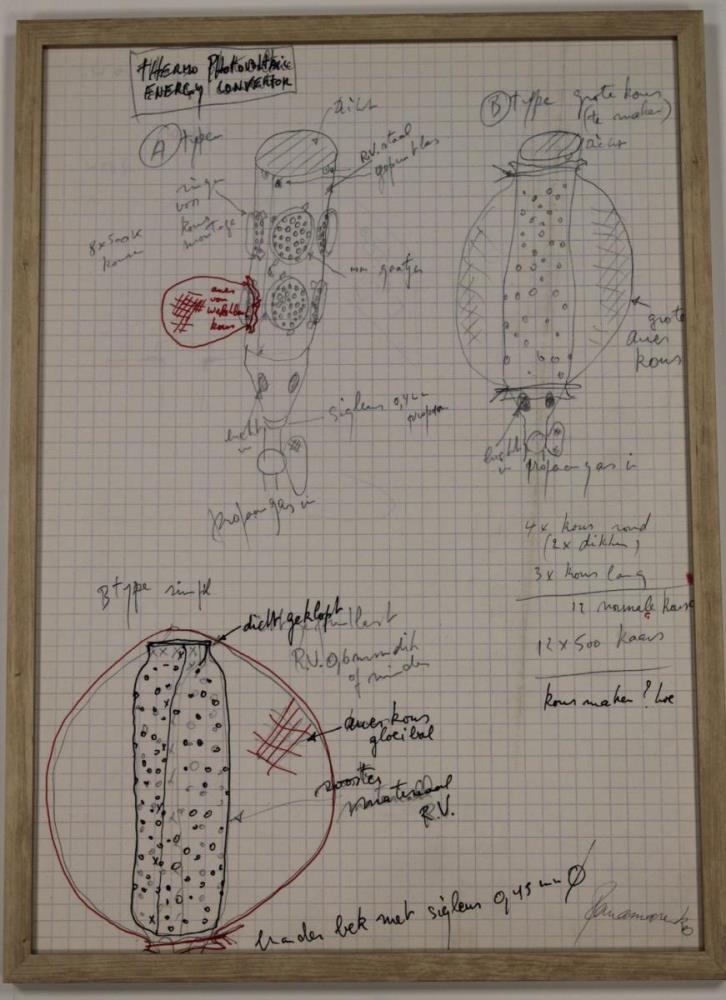 THERMO PHOTOVOLTAIC
ENERGY CONVERTOR
A type
dicht
R.V. staal
gepuntlas
ringen
voor
kous
montage
8x500K
kousen
mm gaatjes
auer
von
welsbach
kous
lucht
in
0,4 mm
propaan
propaangas in
B type grote kous
(te maken)
dicht
grote
auer
kous
lucht
in
propaangas in
4x kous rond
(2x dikte)
3x kous lang
12 normale kous
12x500 kaars
kous maken? hoe
B type simpel
dichtgeklopt
R.V. 0,6 mm dik
of minder
auerkous
gloeibal
rooster
materiaal
R.V.
brander bek met 0,45 mm Ø